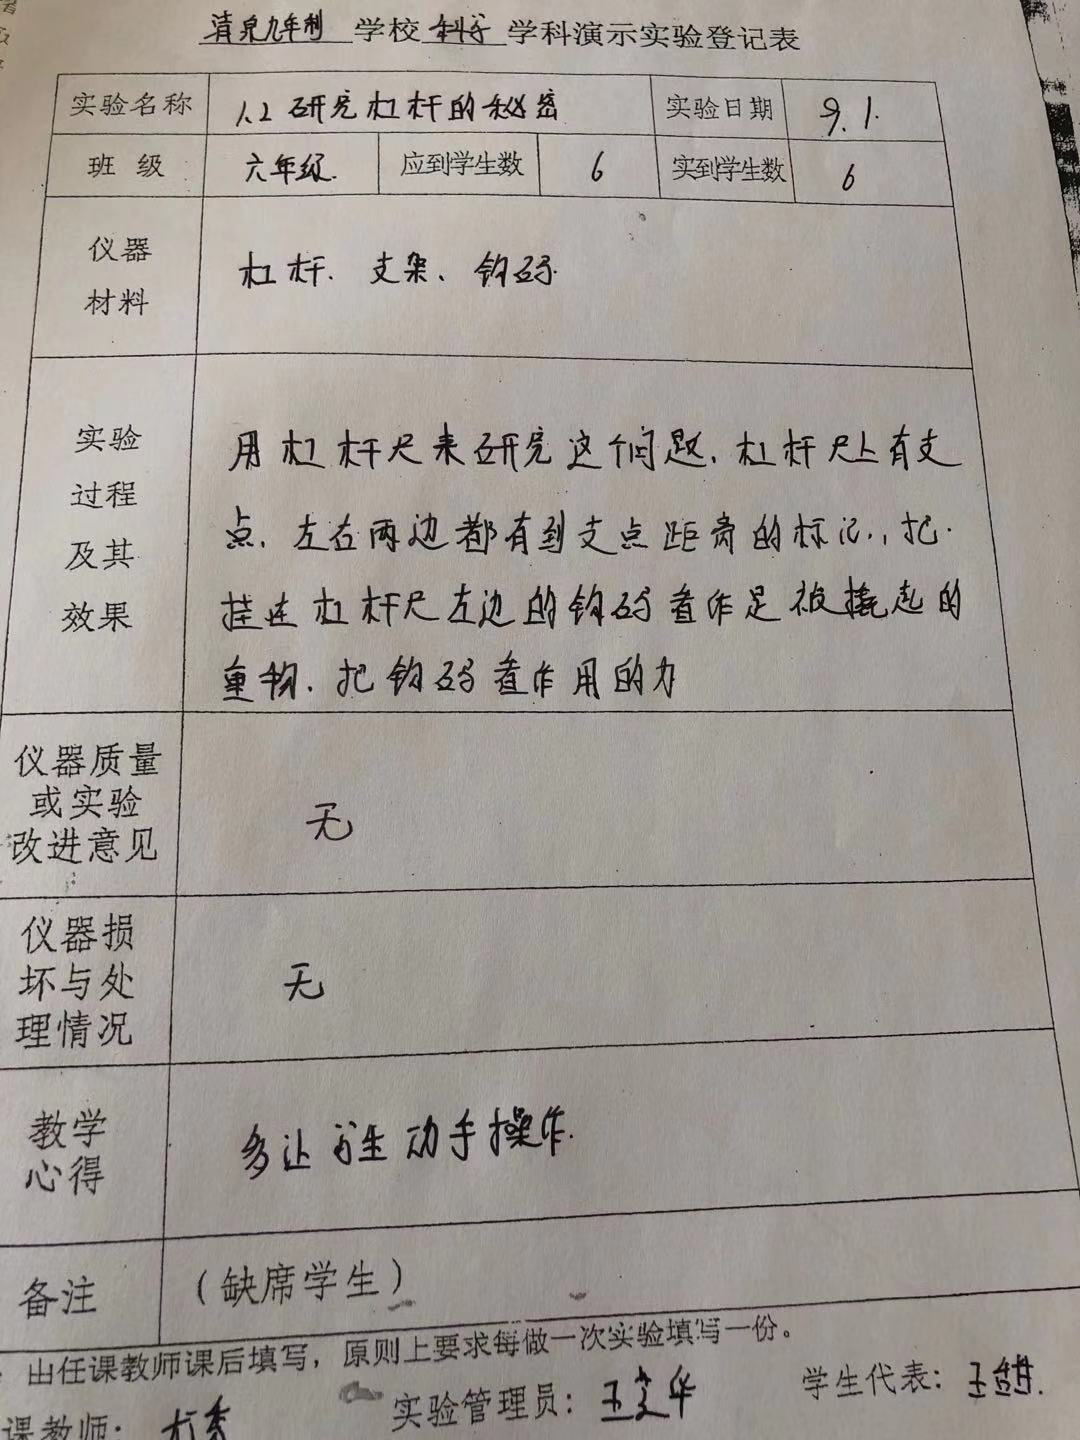 清泉九年制 学校 科学 学科演示实验登记表
实验名称 1.2 研究杠杆的秘密 实验日期 9.1.
班 级 六年级. 应到学生数 6 实到学生数 6
仪器
材料
杠杆. 支架、钩码.
实验
过程
及其
效果
用杠杆尺来研究这个问题. 杠杆尺上有支
点. 左右两边都有到支点距离的标记., 把.
挂在杠杆尺左边的钩码看作是被撬起的
重物. 把钩码看作用的力
仪器质量
或实验
改进意见
无
仪器损
坏与处
理情况
无
教学
心得
多让学生动手操作.
备注 (缺席学生)
由任课教师课后填写，原则上要求每做一次实验填写一份。
课教师: 实验管理员: 王文华 学生代表: 王甜.